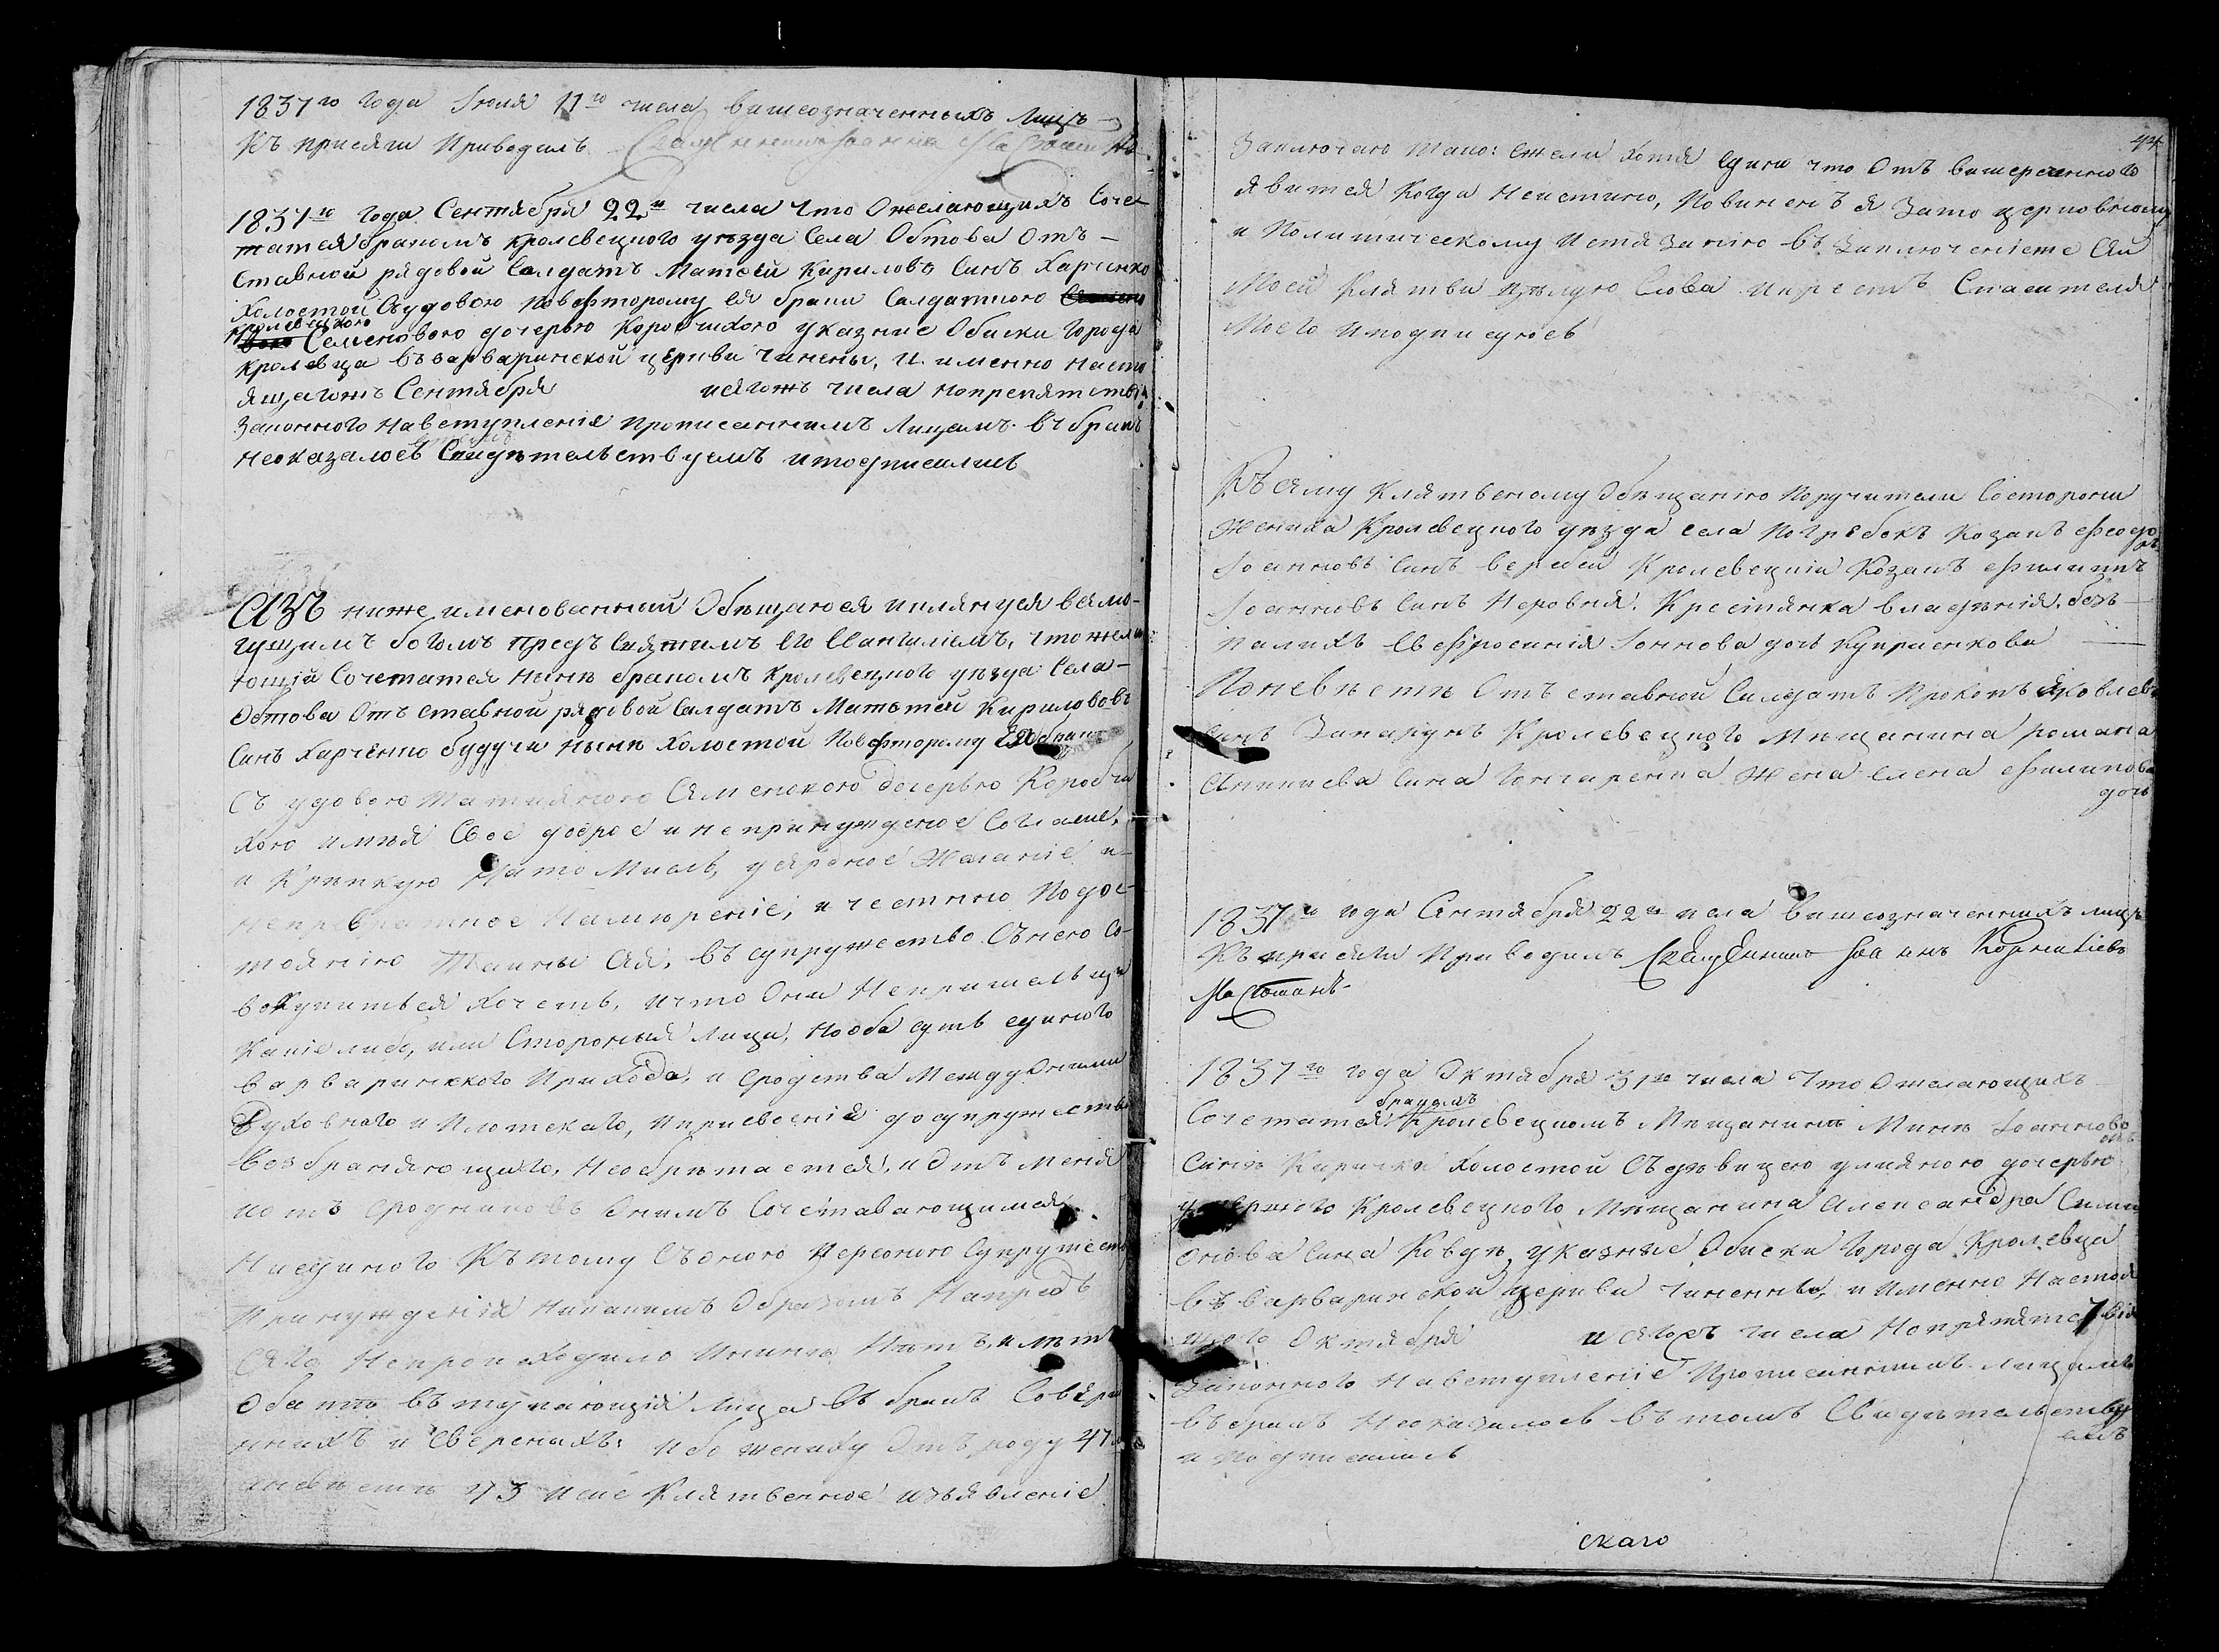 1837го года Іюля 11го числа вишеозначенныхъ Лицъ
Къ присяги Приводилъ Священникъ Іоаннъ
1837го года Сентября 22го числа Что Ожелающихъ Соче-
татся бракомъ кролевецкого уезда Села Обтова Отъ-
ставной рядовой Салдатъ Матвей Кириловъ Синъ Харченко
Холостой Съудовою повефторому ея браки Салдаткою
кролевецкого
Семеновою дочерью Коробчихою указние Обиски Города
кролевца въварваринской церкви чинены, И именно насто
ящагожъ Сентября исягожъ числа Напрепятствія
Законного Навступленія прописаннимъ Лицамъ въ бракъ
неоказалось Свидетельствуемъ итоеписались
АЗЪ ниже именованний Обещаюся иклянуся всемо-
гущимъ богомъ предъ Святимъ Его Евангиліемъ, что жела
ющій Сочетатся ныне бракомъ Кролевецкого уезда Села-
Обтова Отъ ставной рядовой Салдатъ Матвей Кириловъ
Синъ Харченко будучи ныне Холостой Повефторому ея браки
Съ удовою Татияною Семеновою дочерью Коробчи
хою имея Свое доброе и непринужденое Согласие,
и Крепкую Нато Мисль, усердное Желание и
непревратное Намереніе, и честною Подос-
тоянію Тайны Сея, въ супружество Снею Со-
вокупиться Хочетъ, ичто Они Непришельци
Какіе либо, или Сторонныя Лица, Нооба суть единого
варваринского Прихода, и сродства Между Оними
Духовного и Плотскаго, иприсвоенія до супружества
Возбраняющаго, Необретается, и Отъ меня
иотъ Сродниковъ Онимъ Сочетавающимся
Ниединого Къ тому Съоною Персоною Супружест
Принужденія Никакимъ Образомъ Напредъ
Сего Непроиходило Инине Нетъ, и лета
Обаихъ въступающія Лица Въ бракъ Совер
ннихъ и Сверенихъ, ибо жениху Отъ роду 47
аневесте 43 исие Клятвенное изъявление
44
Заключаю тако: Ежели Хотя Едино что Отъ вишереченного
явится Когда Неистино, Повиненъ я Зато церковному
и Политическому Истязанию въ Заключеніеже Сей
Моей Клятви целую Слова икрестъ Спасителя
Моего и подписуюсь
Къ сему Клятвеному Обещанию Поручители Состорони
Жениха Кролевецкого уезда села Погребокъ Козакъ Феодо
ръ
Іоанновъ Синъ Кролевецкій Козакъ Филиппъ
Іоанновъ Синъ Неровня. Крестянка владенія безъ-
палихъ Евефросинія Іоннова дочь Куприенкова
Поневесте Отъ ставной Салдатъ Прокопъ Яковлевъ
Синъ Кролевецкого Мещанина романа
Сина Гончаренка Жена Елена Филипова
дочь
1837го года Сентября 22го числа вишеозначеннихъ лицъ
Къ присяги Приводилъ Священникъ Іоаннъ Корнилієвъ
1837го года Октября 31го числа Что Ожелающихъ
бракомъ
Сочетатся Кролевецкомъ Мещанине Мине Іоаннов
омъ
Сине Киричке Холостой Съ девицею улияною дочерью
умерлого Кролевецкого Мещанина Александра Сими
онова Сина Ковуе указние Обиски Города Кролевца
въварваринской церкви чиненны, и Именно Настоя
щого Октября и сягожъ числа Нопрепятствія
Законного Навступленіе Прописаннимъ Лицамъ
въ бракъ Неоказалось въ томъ Свидетельству
емъ
и подписались
скаго